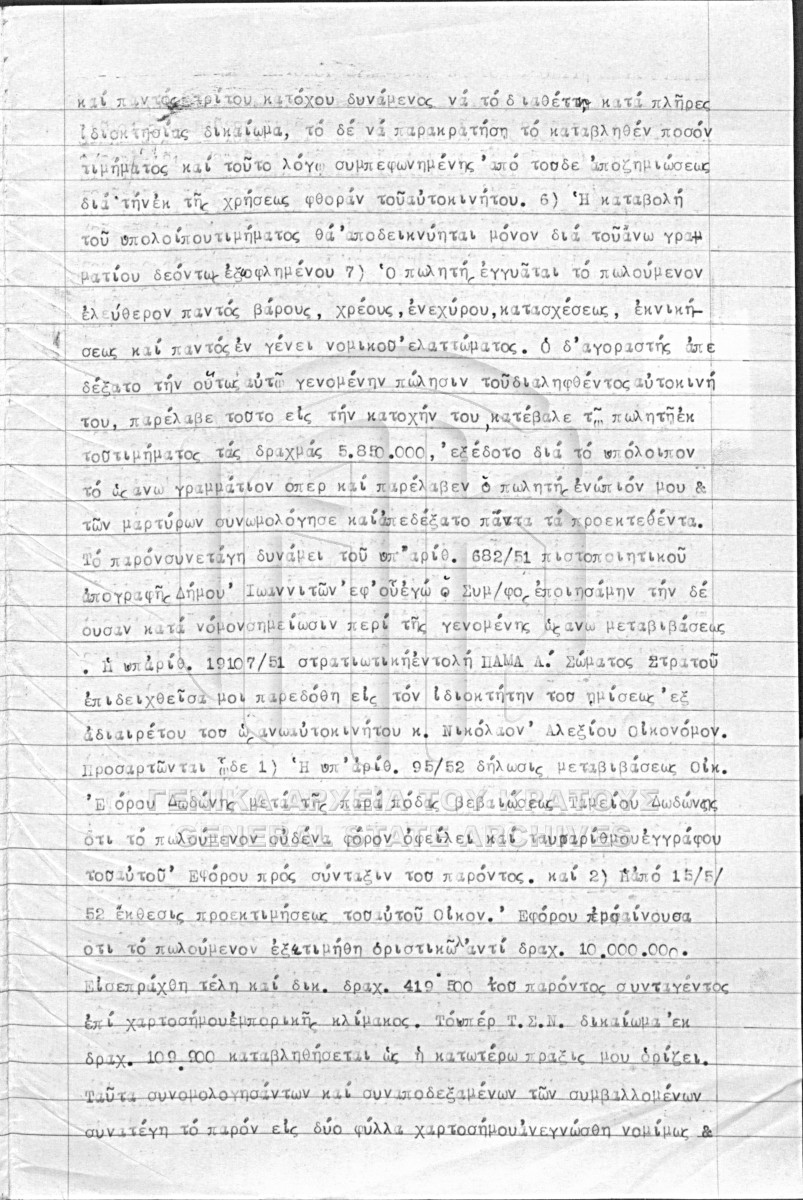 καί παντός τρίτου κατόχου δυνάμενος νά τό διαθέτη κατά πλῆρες
ἰδιοκτησίας δικαίωμα, τό δέ νά παρακρατήση τό καταβληθέν ποσόν
τιμήματος καί τοῦτο λόγω συμπεφωνημένης ἀπό τοῦδε ἀποζημιώσεως
διά τήνἐκ τῆς χρήσεως φθοράν τοῦαὐτοκινήτου. 6) Ἡ καταβολή
τοῦ ὑπολοίπουτιμήματος θά ἀποδεικνύηται μόνον διά τοῦἄνω γραμ
ματίου δεόντως ἐξωφλημένου 7) Ὁ πωλητής ἐγγυᾶται τό πωλούμενον
ἐλεύθερον παντός βάρους, χρέους, ἐνεχύρου, κατασχέσεως, ἐκνική-
σεως καί παντός ἐν γένει νομικοῦ ἐλαττώματος. Ὁ δ'ἀγοραστής ἀπε
δέξατο τήν οὕτως αὐτῶ γενομένην πώλησιν τοῦδιαληφθέντος αὐτοκινή
του, παρέλαβε τοῦτο εἰς τήν κατοχήν του, κατέβαλε τῶ πωλητῆἐκ
τοῦτιμήματος τάς δραχμάς 5.850.000, ἐξέδοτο διά τό ὑπόλοιπον
τό ὡς ανω γραμμάτιον ὅπερ καί παρέλαβεν ὁ πωλητής ἐνώπιόν μου &
τῶν μαρτύρων συνωμολόγησε καίἀπεδέξατο πάντα τά προεκτεθέντα.
Τό παρόνσυνετάγη δυνάμει τοῦ ὑπ'ἀριθ. 682/51 πιστοποιητικοῦ
ἀπογραφῆς Δήμου Ἰωαννιτῶν ἐφ'οὗἐγώ ὁ Συμ/φος ἐποιησάμην τήν δέ
ουσαν κατά νόμονσημείωσιν περί τῆς γενομένης ὡς ανω μεταβιβάσεως
. Ἡ ὑπἀριθ. 19107/51 στρατιωτικήἐντολή ΠΑΜΑ Α.΄ Σώματος Στρατοῦ
ἐπιδειχθεῖσα μοι παρεδόθη εἰς τόν ἰδιοκτήτην τοῦ ἡμίσεως ἐξ
ἀδιαιρέτου τοῦ ὡς ανωαὐτοκινήτου κ. Νικόλαον Ἀλεξίου Οἰκονόμον.
Προσαρτῶνται ὧδε 1) Ἡ ὑπ'ἀριθ. 95/52 δήλωσις μεταβιβάσεως Οἰκ.
Ἐφόρου Δωδώνης μετά τῆς παρά πόδας βεβαιώσεως Ταμείου Δωδώνης
ὅτι τό πωλούμενον οὐδένα φόρον ὀφείλει καί ταυταρίθμουἐγγράφου
τοῦαὐτοῦ Ἐφόρου πρός σύνταξιν τοῦ παρόντος. καί 2) Ἡἀπό 15/5/
52 ἔκθεσις προεκτιμήσεως τοῦαὐτοῦ Οἰκον. Ἐφόρου ἐμφαίνουσα
ὅτι τό πωλούμενον ἐξετιμήθη ὁριστικῶς ἀντί δραχ. 10.000.000.
Εἰσεπράχθη τέλη καί δικ. δραχ. 419.500 τοῦ παρόντος συνταγέντος
ἐπί χαρτοσήμουἐμπορικῆς κλίμακος. Τόὑπέρ Τ.Σ.Ν. δικαίωμα ἐκ
δραχ. 109.900 καταβληθήσεται ὡς ἡ κατωτέρω πρᾶξις μου ὁρίζει.
Ταῦτα συνομολογησάντων καί συναποδεξαμένων τῶν συμβαλλομένων
συνατέγη τό παρόν εἰς δύο φύλλα χαρτοσήμουἀνεγνώσθη νομίμως &
ΓΕΝΙΚΑ ΑΡΧΕΙΑ ΤΟΥ ΚΡΑΤΟΥΣ
GENERAL STATE ARCHIVES